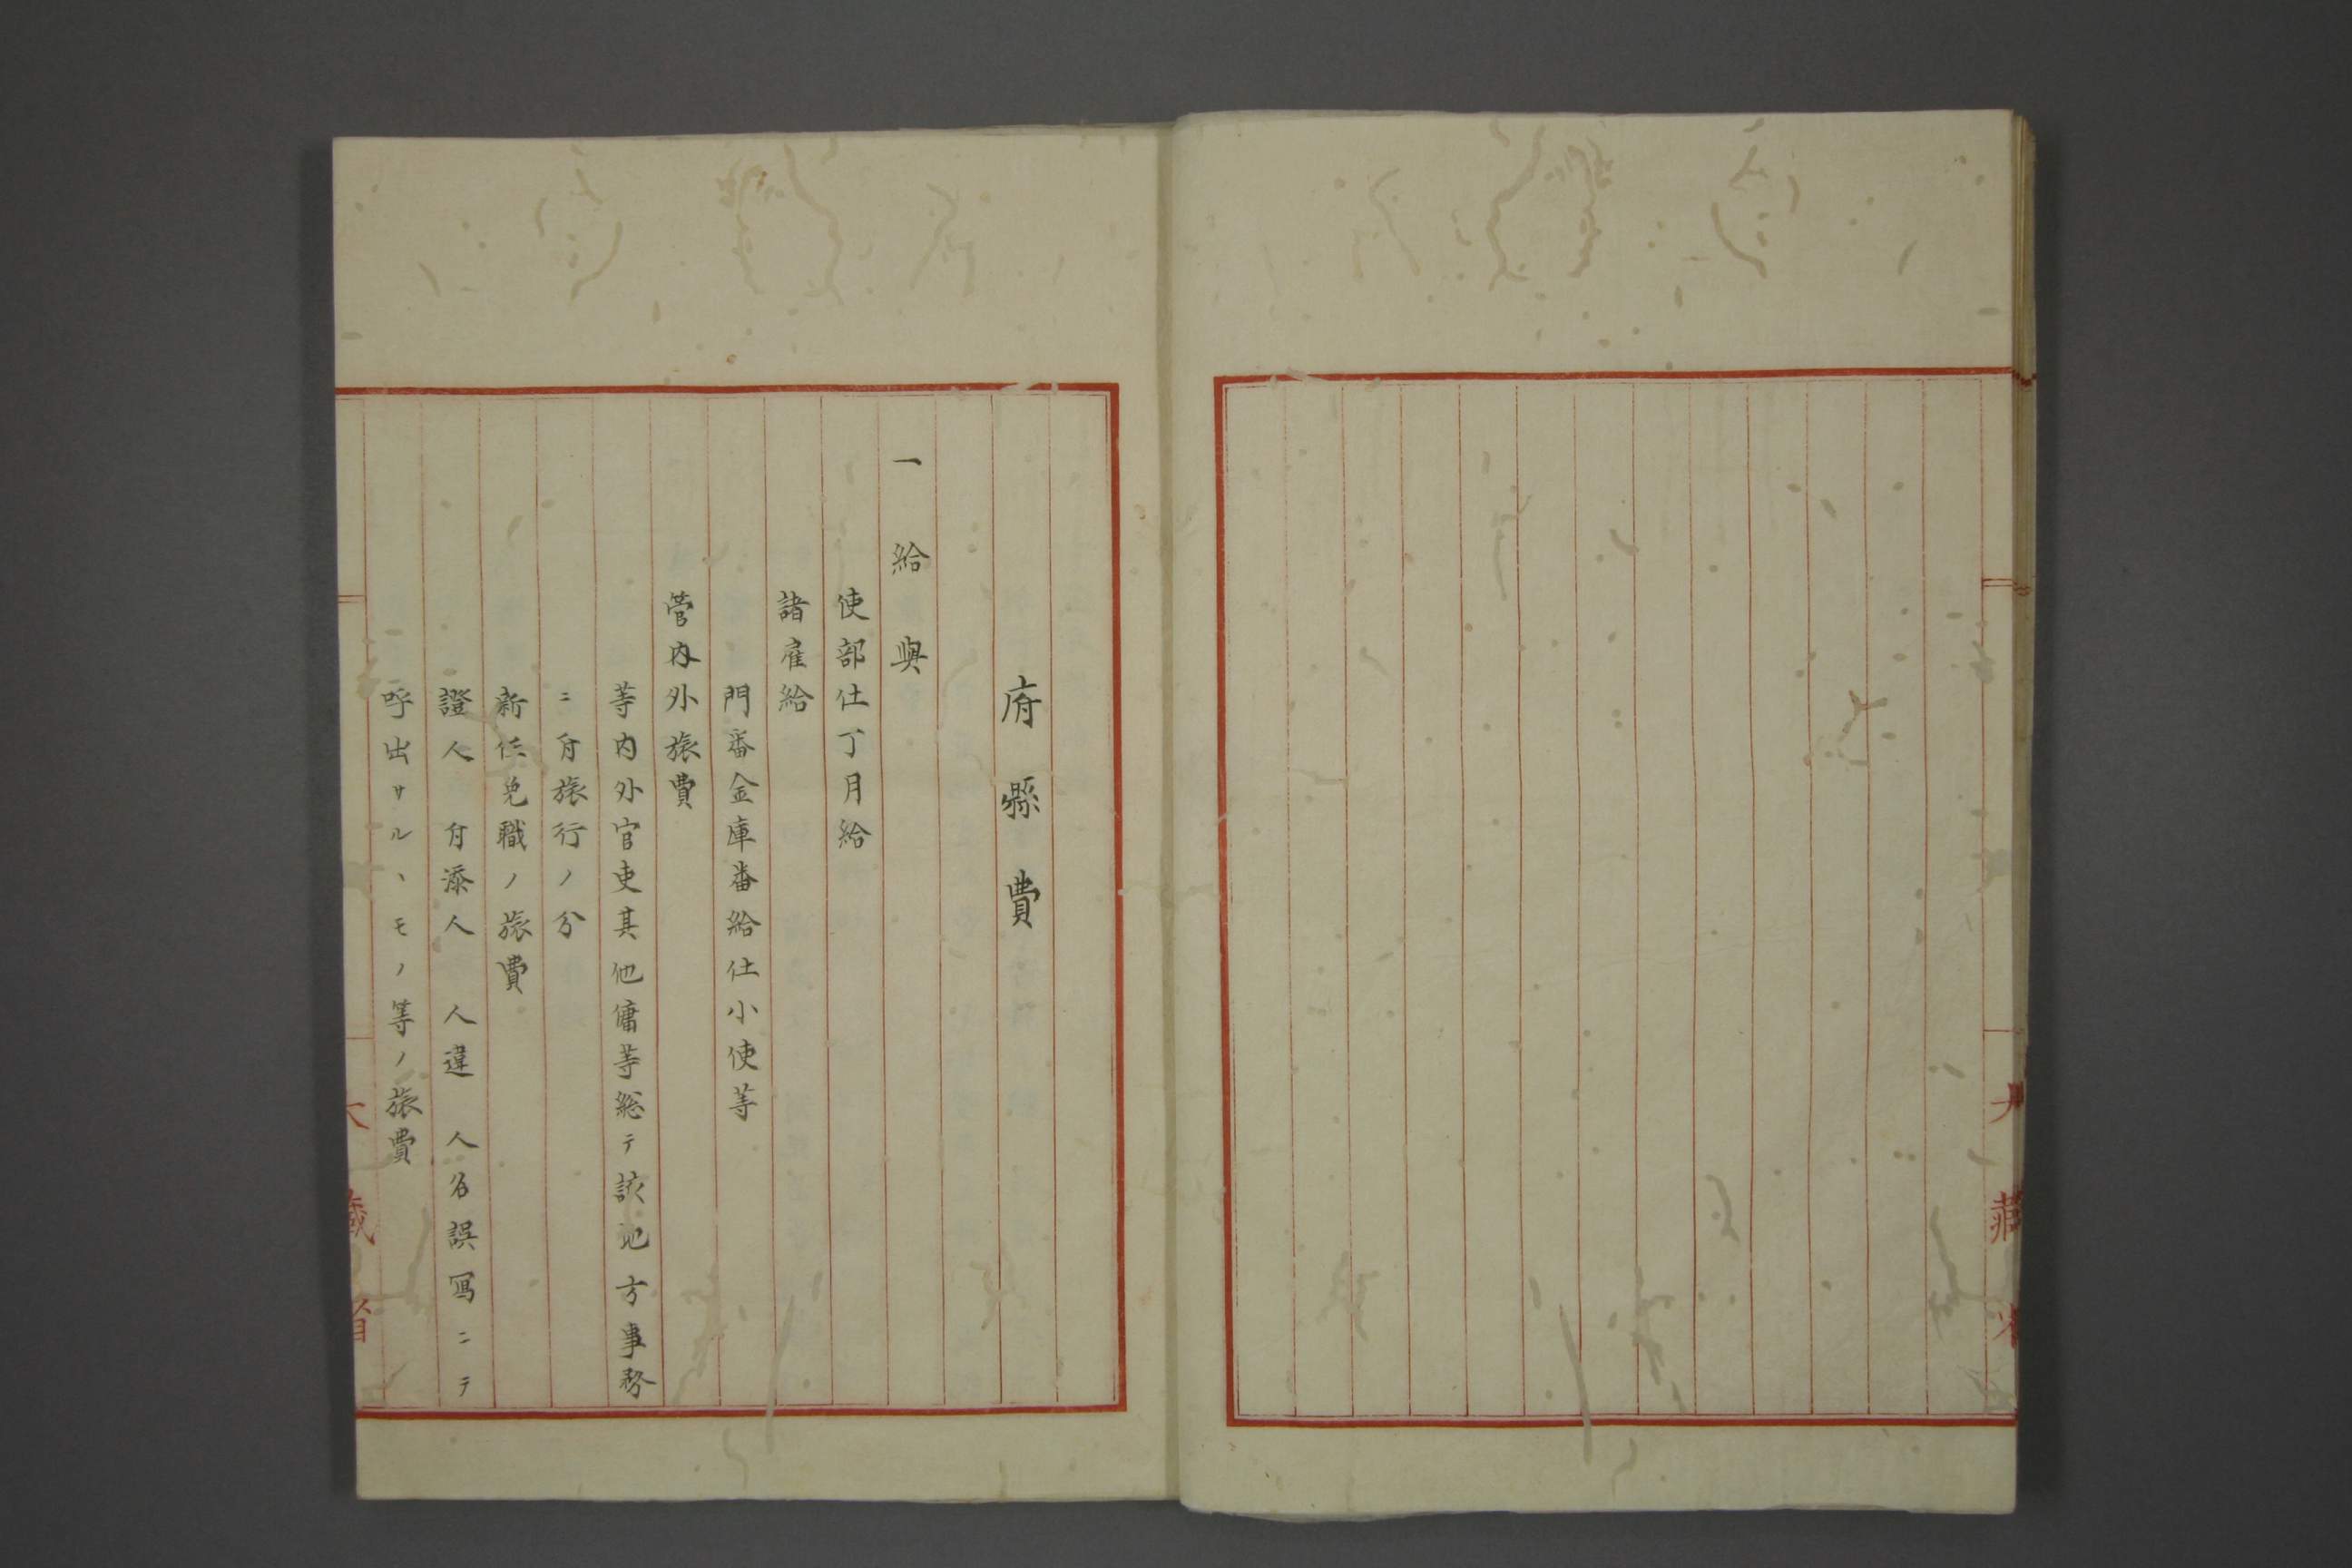 大藏省
府縣費
一 給與
使部仕丁月給
諸雇給
門番金庫番給仕小使等
管内外旅費
等内外官吏其他傭等総テ該地方事務
ニ付旅行ノ分
新任免職ノ旅費
證人 付添人 人違 人名誤寫ニテ
呼出サルヽモノ等ノ旅費
大藏省